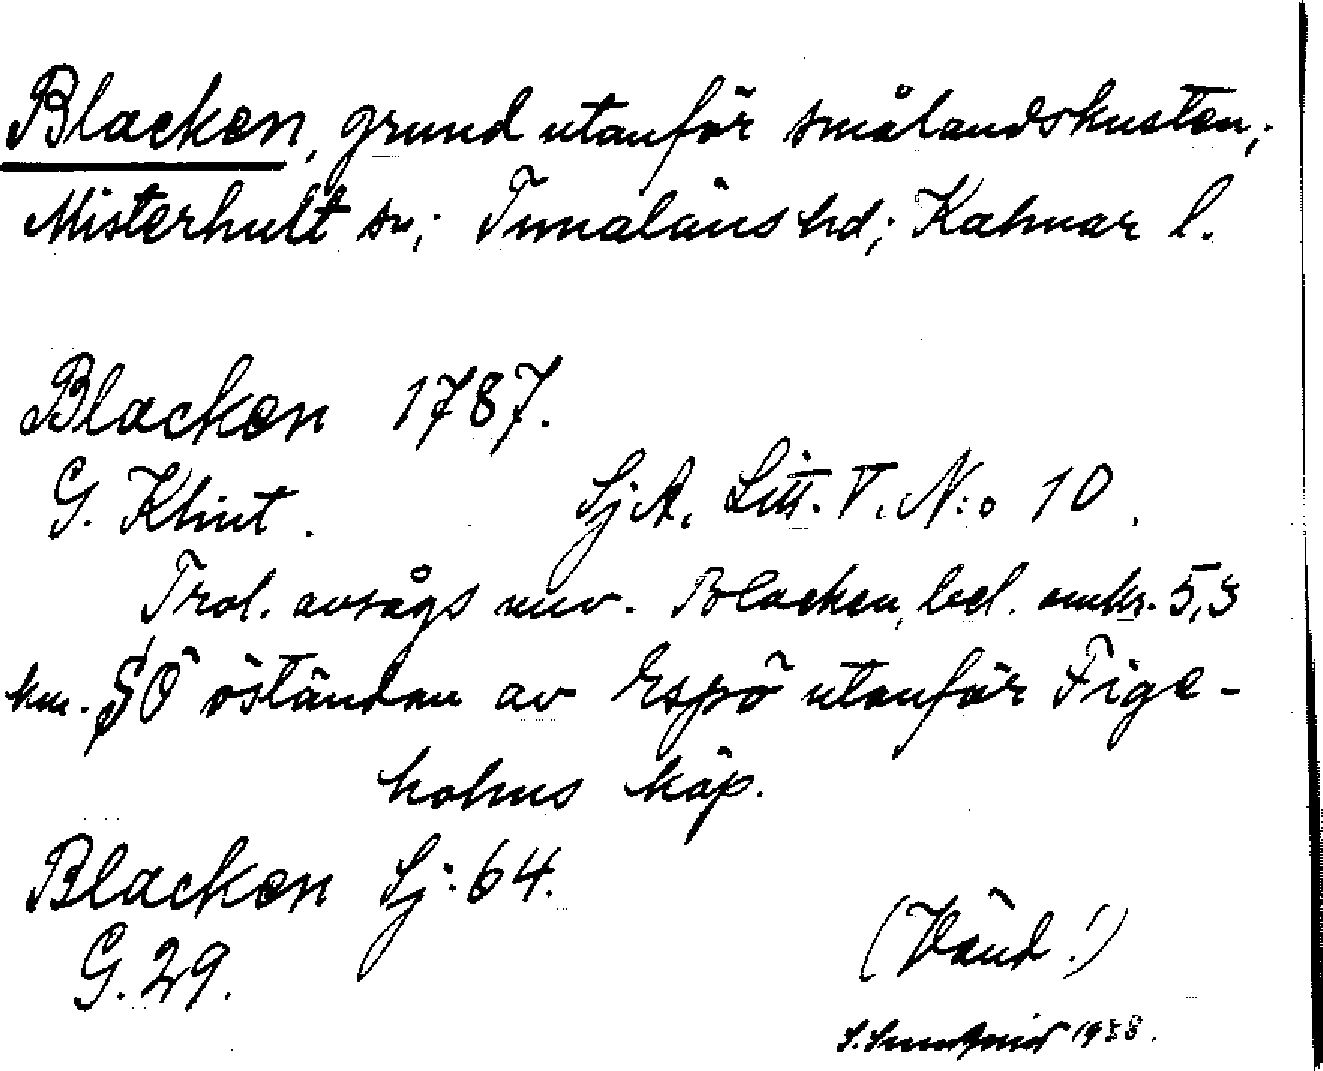 Blacken, grund utanför smålandskusten;
Misterhult sn; Tunaläns hd; Kalmar l.
Blacken 1787.
G. Klint. Sj A. Litt. V. N:o 10.
Trol. avsågs nuv. Blacken, bel. omkr. 5,3
km. SO öständen av Espö utanför Fige-
holms köp.
Blacken Sj: 64.
G. 29.
(Vänd!)
S. Sundqvist 1938.